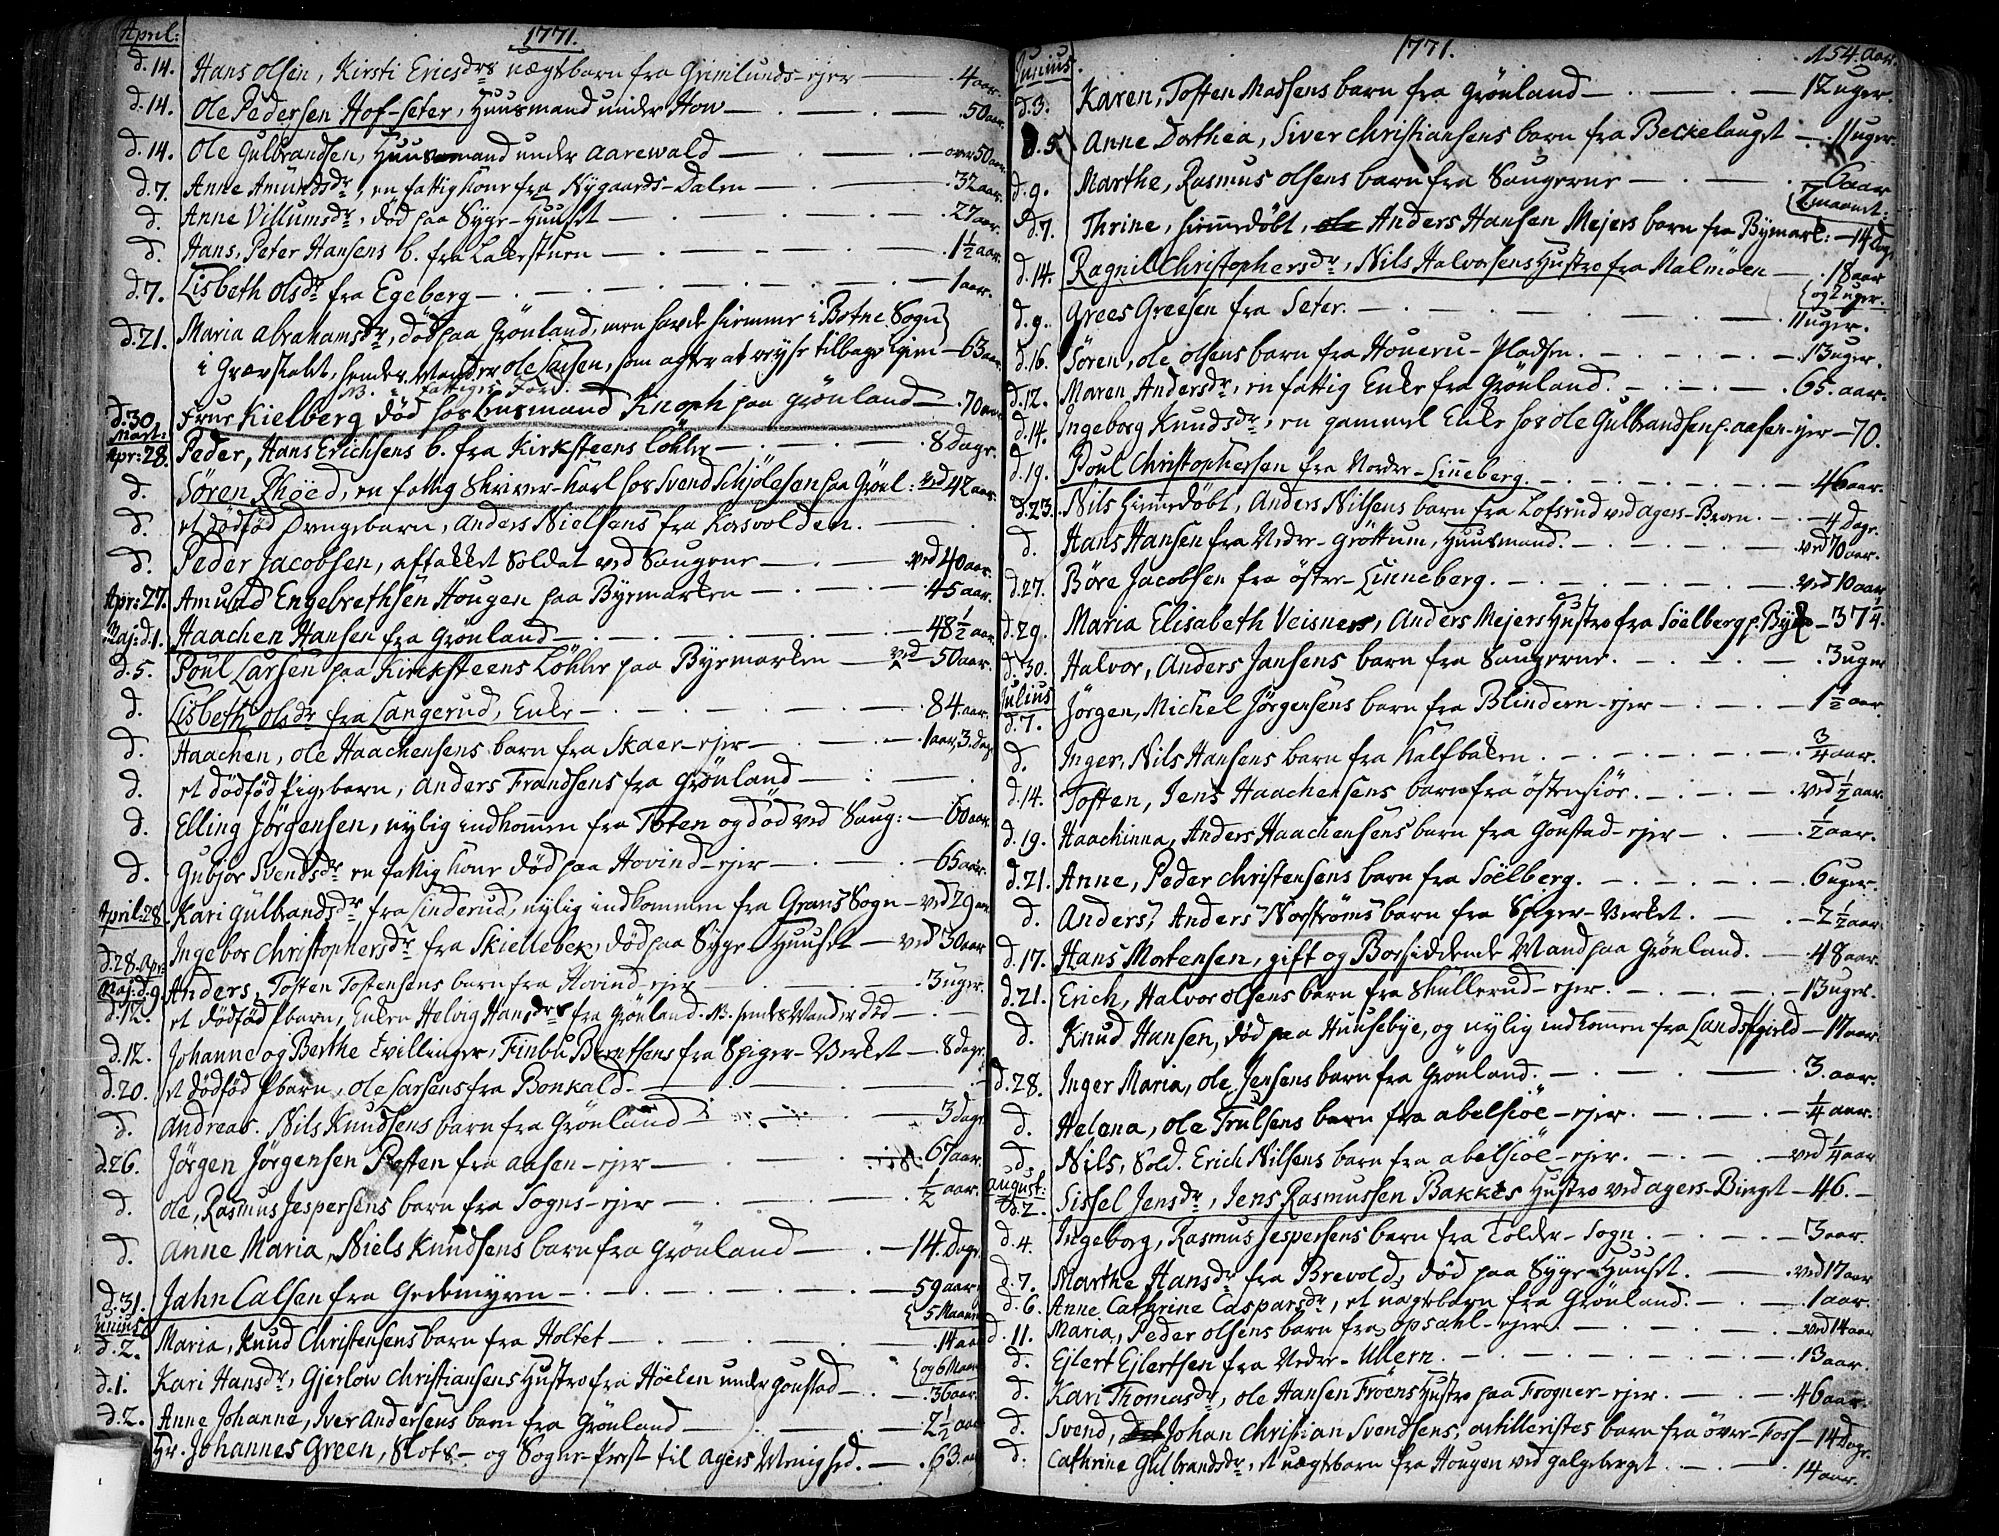 April:
1771.
d. 14. Hans Olsen, Kirsti Ericsdrs uægte barn fra Grimelunds-ejer — 4 aar.
d. 14. Ole Pedersen Hof-seter, Huusmand under How — 50 aar.
d. 14. Ole Gulbrandsen, Huusmand under Aarewald — over 50 aar
d. 7. Anne Amundsdr, en fattig kone fra Nygaards-Dalen — 32 aar.
d. Anne Villumsdr, død paa Syge-Huuset — 27 aar.
d. Hans, Peter Hansens b. fra Lakersturen — 1½ aar.
d. 7. Lisbeth Olsdr fra Egeberg — 1 aar.
d. 21. Maria Abrahamsdr, død paa Grönland, men havde hiemme i Botne Sogn
i Grevskabet, hendes Mand er Ole Larsen, som agter at reyse tilbage igien — 63 aar
NB. fattiges Ford.
d. 30 Mart: Frue Kielberg død hos Lensmand Knoph paa Grönland — 70 aar
Apr: 28. Peder, Hans Erichsens b. fra Kirksteens Løkke — 8 Dage.
d. Sören Phöed, en fattig Skriver-karl hos Svend Schjölesen paa Grönl: — ved 42 aar.
d. et dødfød Drengebarn, Anders Nielsens fra Korsvolden.
d. Peder Jacobsen, aftakket Soldat ved Saugene — ved 40 aar.
Apr: 27. Amund Engebrethsen Hougen paa Byemarken — 45 aar.
Maj: d. 1. Haachen Hansen fra Grönland — 48½ aar
d. 5. Poul Larsen paa Kirksteens Løkke paa Byemarken — ved 50 aar.
d. Lisbeth Olsdr fra Langerud, Enke — 84 aar.
d. Haachen, Ole Haachensens barn fra Skaer-ejer — 1 aar, 3. dag
d. et dødfød Pigebarn, Anders Frandsens fra Grönland —
d. Elling Jörgensen, nylig indkommen fra Toten og død ved Saug: — 60 aar
d. Gubjör Svendsdr en fattig kone død paa Hovind-ejer — 65 aar.
April: 28 Kari Gulbrandsdr fra Linderud, nylig indkommen fra Grans Sogn — ved 29 aar
d. 28. Apr: Ingebor Christophersdr fra Skiellebek, død paa Syge-Huuset — ved 30 aar
Maj: d. 9. Anders, Tosten Tostensens barn fra Hovind-ejer — 3 uger.
d. 12. et dødfød Pbarn, Enken Helvig Hansdrs fra Grönland. NB. hendes Mand er død —
d. 12. Johanne og Berthe tvillinger, Finbu Berntsens fra Spiger-Verket — 8 dage.
d. 20. et dødfød Pbarn, Ole Larsens fra Bonkald.
d. Andreas, Nils Knudsens barn fra Grönland — 3 dage
d. 26. Jörgen Jörgensen Rosten fra Aasen-ejer — 67 aar.
d. Ole, Rasmus Jespersens barn fra Sogns-ejer — ½ aar.
d. Anne Maria, Niels Knudsens barn fra Grönland — 14. Dage
d. 31. Jahn Calsen fra Gedemyren — 59 aar
5 Maan
Junius d. 2. Maria, Knud Christensens barn fra Holtet — 14 aar
og 6 Maan
d. 1. Kari Hansdr, Gjerlow Christiansens Hustro fra Höelen under Gonstad — 36 aar.
d. 2. Anne Johanne, Iver Andersens barn fra Grönland — 2½ aar
Hr. Johannes Green, Slots- og Sogne-Prest til Agers Menighed. — 63. aar
Junius.
1771.
154. Aar.
d. 3. Karen, Tosten Madsens barn fra Grönland — 12 uger.
d. 5 Anne Dorthea, Siver Christiansens barn fra Beckelauget — 11 uger.
d. 9. Marthe, Rasmus Olsens barn fra Saugerne — 6 aar
7 maanet:
d. 7. Thrine, hiemmedöbt, Anders Hansen Mejers barn fra Bymark: — 14 Dag
d. 14. Ragnil Christophersdr, Nils Halvorsens Hustro fra Malmöen — 18 aar
og 2 uger.
d. 9. Grees Greesen fra Seter. — 11 uger.
d. 16. Sören, Ole Olsens barn fra Houeru-Pladsen. — 13 uger.
d. 12. Maren Andersdr, en fattig Enke fra Grönland. — 65. aar.
d. 14. Ingeborg Knudsdr, en gammel Enke hos Ole Gulbrandsen p. Aasen-ejer — 70.
d. 19. Poul Christophersen fra Norder-Linneberg. — 46 aar.
d. 23. Nils hiemmedöbt, Anders Nilsens barn fra Lofsrud ved Agers-Broen. — 4 dage.
d. Hans Hansen fra Nedre-Gröttum, Huusmand. — ved 70 aar.
d. 27. Böre Jacobsen fra Östre-Linneberg. — ved 10 aar
d. 29. Maria Elisabeth Veisners, Anders Mejers Hustro fra Söelberg p. Bye — 37¼.
d. 30. Halvor, Anders Jansens barn fra Saugerne. — 3 uger
Julius d. 7. Jörgen, Michel Jörgensens barn fra Blindern-ejer — 1½ aar.
d. Inger, Nils Hansens barn fra Kalfbaken. — ¾ aar.
d. 14. Tosten, Jens Haachensens barn fra Östensiöe. — ved ½ aar.
d. 19. Haachinna, Anders Haachensens barn fra Gonstad-ejer — ½ aar.
d. 21. Anne, Peder Christensens barn fra Söelberg. — 6 uger.
d. Anders, Anders Norströms barn fra Spiger-Verket. — 2½ aar.
d. 17. Hans Mortensen, gift og Borsiddende Mand paa Grönland. — 48 aar.
d. 21. Erich, Halvor Olsens barn fra Skullerud-ejer. — 13 uger.
d. Knud Hansen, død paa Huusebye, og nylig indkomen fra Landsfjeld — 17 aar.
d. 28. Inger Maria, Ole Jensens barn fra Grönland. — 3. aar.
d. Helena, Ole Trulsens barn fra Abelsiöe-ejer. — ¼ aar.
d. Nils, Sold. Erich Nilsens barn fra Abelsiöe-ejer. — ved ¼ aar
August: d. 2. Sissel Jensdr, Jens Rasmussen Bakkes Hustro ved Agers-Birget — 46. —
d. 4. Ingeborg, Rasmus Jespersens barn fra Tolder-Sogn. — 3 aar.
d. 7. Marthe Hansdr fra Brevold, død paa Syge-Huuset. — ved 17 aar
d. 6. Anne Cathrine Caspersdr, et uægte barn fra Grönland. — 1 aar.
d. 11. Maria, Peder Olsens barn fra Opsahl-ejer. — ved 14 aar
d. Ejlert Ejlertsen fra Nedre-Ullern. — 13 aar.
d. Kari Thomasdr, Ole Hansen Fröens Hustro paa Frogner-ejer. — 46 aar.
d. Svend, Johan Christian Svendsens, artilleristes barn fra Över-Foss — 14 Dage.
d. Cathrine Gulbrandsdr, et uægte barn fra Hougen ved Galgeberget — 14 aar.